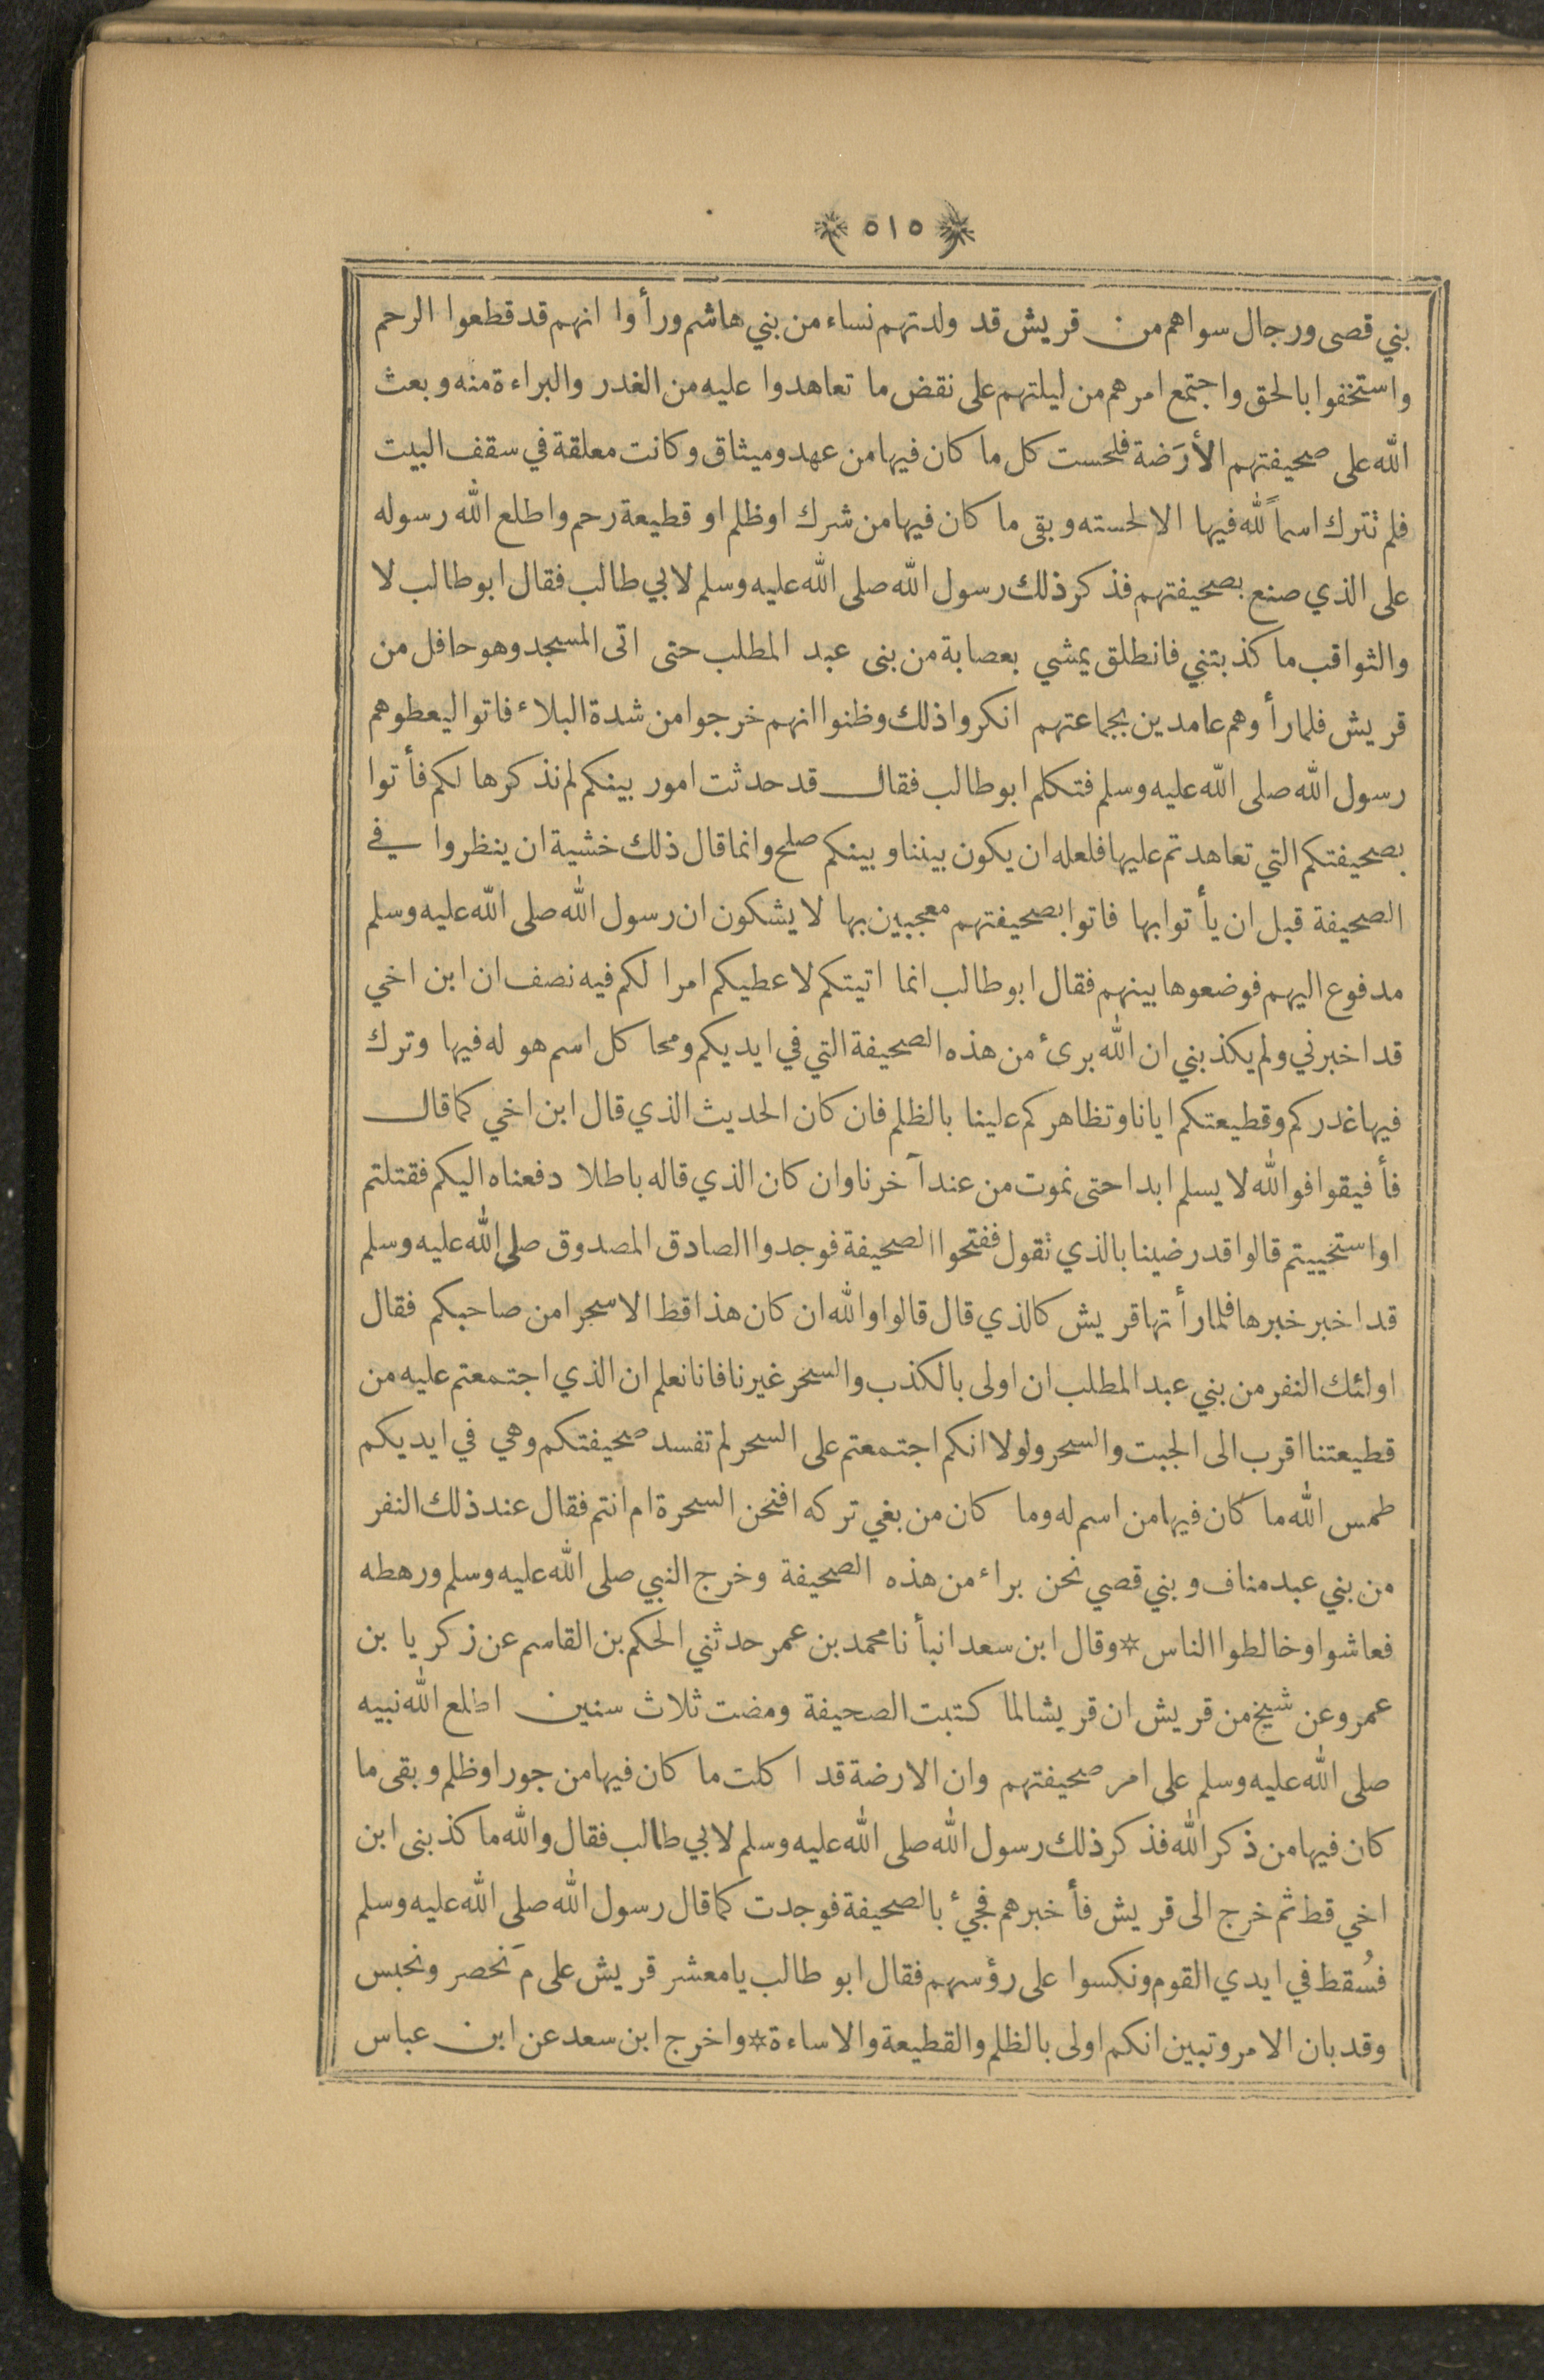 ٥١٥
بني قصى ورجال سواهم من قريش قد ولدتهم نساء من بني هاشم ورأوا انهم قد قطعوا الرحم
واستخفوا بالحق واجتمع امرهم من ليلتهم على نقض ما تعاهدوا عليه من الغدر والبراءة منه وبعث
الله على صحيفتهم الأرَضة فلحست كل ما كان فيها من عهد وميثاق وكانت معلقة في سقف البيت
فلم تترك اسماً لله فيها الا لحسته وبقى ما كان فيها من شرك او ظلم او قطيعة رحم واطلع الله رسوله
على الذي صنع بصحيفتهم فذكر ذلك رسول الله صلى الله عليه وسلم لابي طالب فقال ابو طالب لا
والثواقب ما كذبتني فانطلق يمشي بعصابة من بنى عبد المطلب حتى اتى المسجد وهو حافل من
قريش فلما رأوهم عامدين بجماعتهم انكروا ذلك وظنوا انهم خرجوا من شدة البلاء فاتوا ليعطوهم
رسول الله صلى الله عليه وسلم فتكلم ابو طالب فقال قد حدثت امور بينكم لم نذكرها لكم فأتوا
بصحيفتكم التي تعاهدتم عليها فلعله ان يكون بيننا وبينكم صلح وانما قال ذلك خشية ان ينظروا في
الصحيفة قبل ان يأتوا بها فاتوا بصحيفتهم معجبين بها لا يشكون ان رسول الله صلى الله عليه وسلم
مدفوع اليهم فوضعوها بينهم فقال ابو طالب انما اتيتكم لاعطيكم امرا لكم فيه نصف ان ابن اخي
قد اخبرني ولم يكذبني ان الله برئ من هذه الصحيفة التي في ايديكم ومحا كل اسم هو له فيها وترك
فيها غدركم وقطيعتكم ايانا وتظاهركم علينا بالظلم فان كان الحديث الذي قال ابن اخي كما قال
فأفيقوا فوالله لا يسلم ابدا حتى نموت من عند آخرنا وان كان الذي قاله باطلا دفعناه اليكم فقتلتم
او استحييتم قالوا قد رضينا بالذي تقول ففتحوا الصحيفة فوجدوا الصادق المصدوق صلى الله عليه وسلم
قد اخبر خبرها فلما رأتها قريش كالذي قال قالوا والله ان كان هذا قط الا سحرا من صاحبكم فقال
اولئك النفر من بني عبد المطلب ان اولى بالكذب والسحر غيرنا فانا نعلم ان الذي اجتمعتم عليه من
قطيعتنا اقرب الى الجبت والسحر ولولا انكم اجتمعتم على السحر لم تفسد صحيفتكم وهي في ايديكم
طمس الله ما كان فيها من اسم له وما كان من بغي تركه افنحن السحرة ام انتم فقال عند ذلك النفر
من بني عبد مناف وبني قصي نحن براء من هذه الصحيفة وخرج النبي صلى الله عليه وسلم ورهطه
فعاشوا وخالطوا الناس * وقال ابن سعد انبأنا محمد بن عمر حدثني الحكم بن القاسم عن زكريا بن
عمرو عن شيخ من قريش ان قريشا لما كتبت الصحيفة ومضت ثلاث سنين اطلع الله نبيه
صلى الله عليه وسلم على امر صحيفتهم وان الارضة قد اكلت ما كان فيها من جور او ظلم وبقى ما
كان فيها من ذكر الله فذكر ذلك رسول الله صلى الله عليه وسلم لابي طالب فقال والله ما كذبنى ابن
اخي قط ثم خرج الى قريش فأخبرهم فجئ بالصحيفة فوجدت كما قال رسول الله صلى الله عليه وسلم
فسُقط في ايدي القوم ونكسوا على رؤسهم فقال ابو طالب يا معشر قريش على مَ نحصر ونحبس
وقد بان الامر وتبين انكم اولى بالظلم والقطيعة والاساءة * واخرج ابن سعد عن ابن عباس